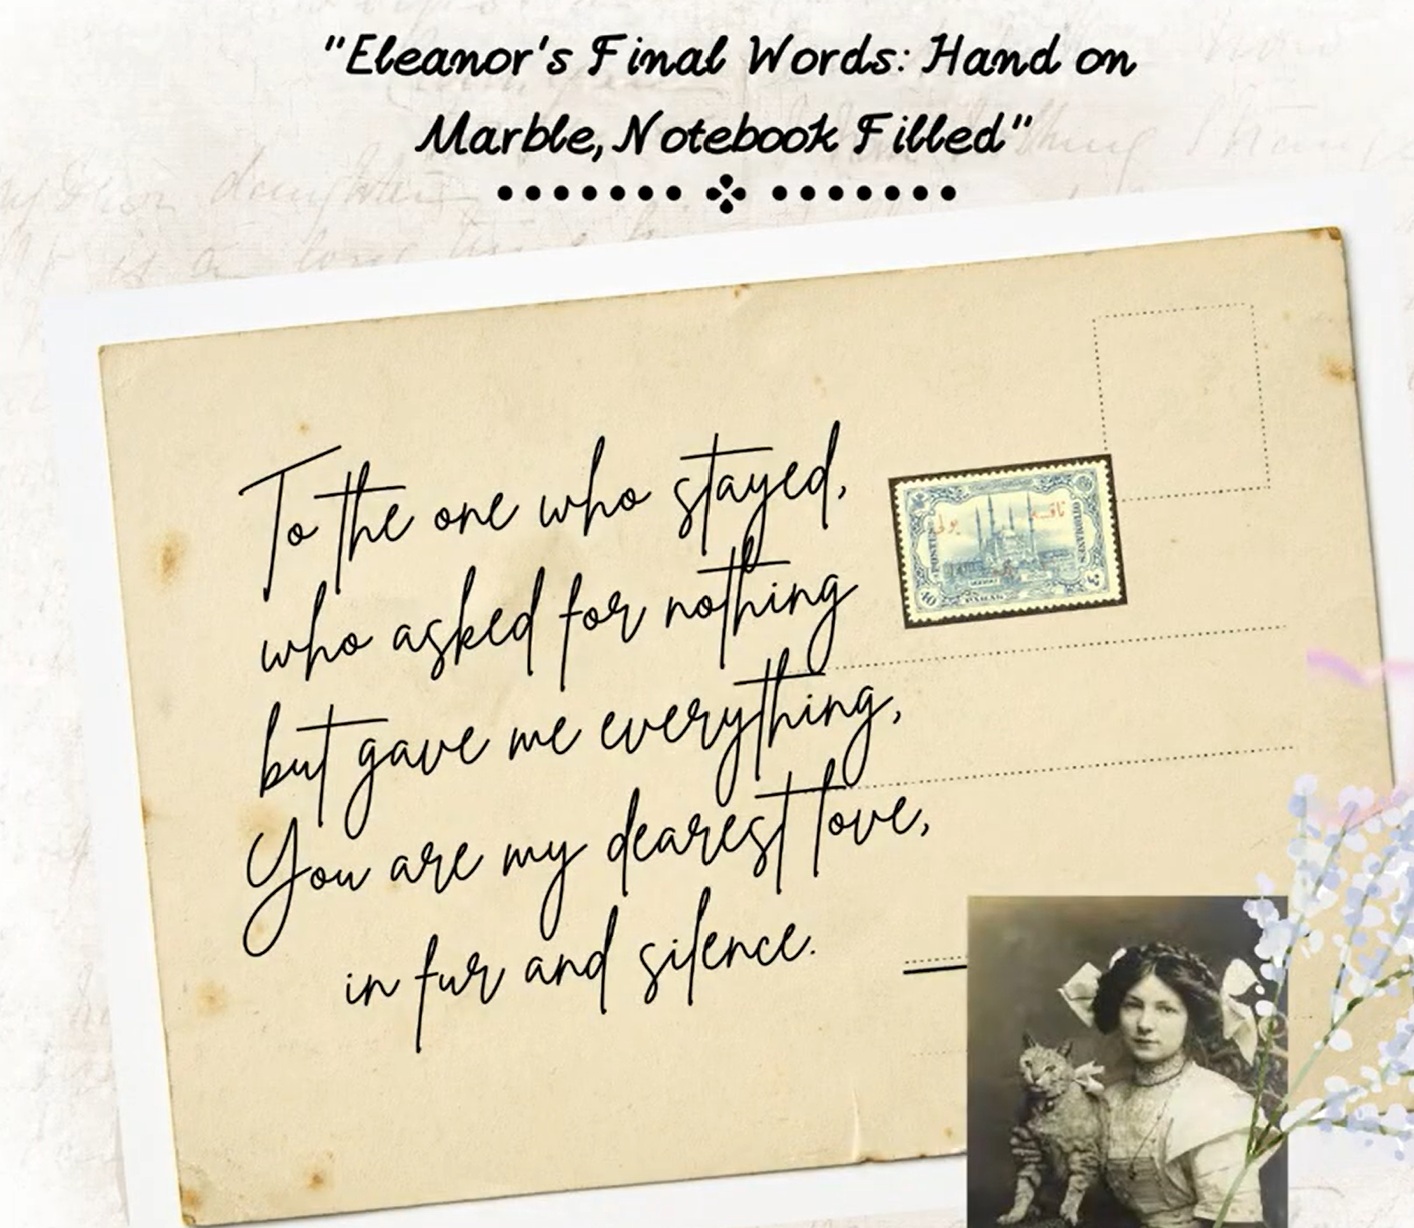 "Eleanor's Final Words: Hand on
Marble, Notebook Filled"
To the one who stayed,
who asked for nothing
but gave me everything,
You are my dearest love,
in fur and silence.
POSTES
OTTOMANES